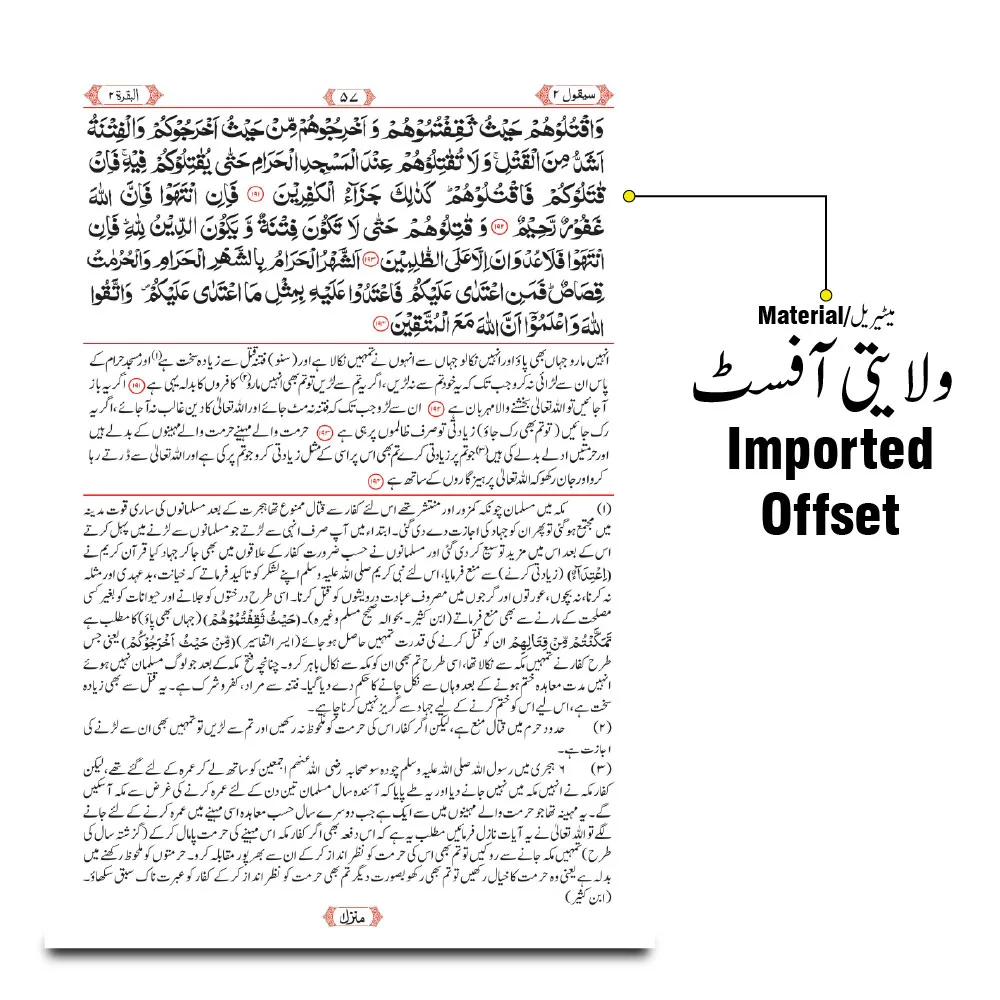 سیقول ۲
۵۷
البقرة ۲
وَاقْتُلُوْهُمْ حَيْثُ ثَقِفْتُمُوْهُمْ وَ اَخْرِجُوْهُمْ مِّنْ حَيْثُ اَخْرَجُوْكُمْ وَالْفِتْنَةُ
اَشَدُّ مِنَ الْقَتْلِ ۚ وَ لَا تُقٰتِلُوْهُمْ عِنْدَ الْمَسْجِدِ الْحَرَامِ حَتّٰى يُقٰتِلُوْكُمْ فِيْهِ ۚ فَاِنْ
قٰتَلُوْكُمْ فَاقْتُلُوْهُمْ ؕ كَذٰلِكَ جَزَآءُ الْكٰفِرِيْنَ ۱۹۱ فَاِنِ انْتَهَوْا فَاِنَّ اللّٰهَ
غَفُوْرٌ رَّحِيْمٌ ۱۹۲ وَ قٰتِلُوْهُمْ حَتّٰى لَا تَكُوْنَ فِتْنَةٌ وَّ يَكُوْنَ الدِّيْنُ لِلّٰهِ ؕ فَاِنِ
انْتَهَوْا فَلَا عُدْوَانَ اِلَّا عَلَى الظّٰلِمِيْنَ ۱۹۳ اَلشَّهْرُ الْحَرَامُ بِالشَّهْرِ الْحَرَامِ وَالْحُرُمٰتُ
قِصَاصٌ ؕ فَمَنِ اعْتَدٰى عَلَيْكُمْ فَاعْتَدُوْا عَلَيْهِ بِمِثْلِ مَا اعْتَدٰى عَلَيْكُمْ ۪ وَاتَّقُوا
اللّٰهَ وَ اعْلَمُوْٓا اَنَّ اللّٰهَ مَعَ الْمُتَّقِيْنَ ۱۹۴
انہیں مارو جہاں بھی پاؤ اور انہیں نکالو جہاں سے انہوں نے تمہیں نکالا ہے اور (سنو) فتنہ قتل سے زیادہ سخت ہے (۱) اور مسجد حرام کے
پاس ان سے لڑائی نہ کرو جب تک کہ یہ خود تم سے نہ لڑیں، اگر یہ تم سے لڑیں تو تم بھی انہیں مارو (۲) کافروں کا بدلہ یہی ہے ۱۹۱ اگر یہ باز
آجائیں تو اللہ تعالیٰ بخشنے والا مہربان ہے ۱۹۲ ان سے لڑو جب تک کہ فتنہ نہ مٹ جائے اور اللہ تعالیٰ کا دین غالب نہ آجائے، اگر یہ
رک جائیں (تو تم بھی رک جاؤ) زیادتی تو صرف ظالموں پر ہی ہے ۱۹۳ حرمت والے مہینے حرمت والے مہینوں کے بدلے ہیں
اور حرمتیں ادلے بدلے کی ہیں (۳) جو تم پر زیادتی کرے تم بھی اس پر اسی کے مثل زیادتی کرو جو تم پر کی ہے اور اللہ تعالیٰ سے ڈرتے رہا
کرو اور جان رکھو کہ اللہ تعالیٰ پرہیزگاروں کے ساتھ ہے ۱۹۴
(۱) مکہ میں مسلمان چونکہ کمزور اور منتشر تھے اس لئے کفار سے قتال ممنوع تھا ہجرت کے بعد مسلمانوں کی ساری قوت مدینہ
میں مجتمع ہوگئی تو پھر ان کو جہاد کی اجازت دے دی گئی۔ ابتداء میں آپ صرف انہی سے لڑتے جو مسلمانوں سے لڑنے میں پہل کرتے
اس کے بعد اس میں مزید توسیع کر دی گئی اور مسلمانوں نے حسب ضرورت کفار کے علاقوں میں بھی جا کر جہاد کیا قرآن کریم نے
(اِعْتِدَآءٌ) (زیادتی کرنے) سے منع فرمایا، اس لئے نبی کریم صلی اللہ علیہ وسلم اپنے لشکر کو تاکید فرماتے کہ خیانت، بدعہدی اور مثلہ
نہ کرنا، نہ بچوں، عورتوں اور گرجوں میں مصروف عبادت درویشوں کو قتل کرنا۔ اسی طرح درختوں کو جلانے اور حیوانات کو بغیر کسی
مصلحت کے مارنے سے بھی منع فرماتے (ابن کثیر۔ بحوالہ صحیح مسلم وغیرہ)۔ (حَيْثُ ثَقِفْتُمُوْهُمْ) (جہاں بھی پاؤ) کا مطلب ہے
تَمَكَّنْتُمْ مِّنْ قِتَالِهِمْ ان کو قتل کرنے کی قدرت تمہیں حاصل ہو جائے (ایسر التفاسیر) (مِّنْ حَيْثُ اَخْرَجُوْكُمْ) یعنی جس
طرح کفار نے تمہیں مکہ سے نکالا تھا، اسی طرح تم بھی ان کو مکہ سے نکال باہر کرو۔ چنانچہ فتح مکہ کے بعد جو لوگ مسلمان نہیں ہوئے
انہیں مدت معاہدہ ختم ہونے کے بعد وہاں سے نکل جانے کا حکم دے دیا گیا۔ فتنہ سے مراد، کفر و شرک ہے۔ یہ قتل سے بھی زیادہ
سخت ہے، اس لیے اس کو ختم کرنے کے لیے جہاد سے گریز نہیں کرنا چاہیے۔
(۲) حدود حرم میں قتال منع ہے، لیکن اگر کفار اس کی حرمت کو ملحوظ نہ رکھیں اور تم سے لڑیں تو تمہیں بھی ان سے لڑنے کی
اجازت ہے۔
(۳) ۶ ہجری میں رسول اللہ صلی اللہ علیہ وسلم چودہ سو صحابہ رضی اللہ عنہم اجمعین کو ساتھ لے کر عمرہ کے لئے گئے تھے، لیکن
کفار مکہ نے انہیں مکہ میں نہیں جانے دیا اور یہ طے پایا کہ آئندہ سال مسلمان تین دن کے لئے عمرہ کرنے کی غرض سے مکہ آسکیں
گے۔ یہ مہینہ تھا جو حرمت والے مہینوں میں سے ایک ہے جب دوسرے سال حسب معاہدہ اسی مہینے میں عمرہ کرنے کے لئے جانے
لگے تو اللہ تعالیٰ نے یہ آیات نازل فرمائیں مطلب یہ ہے کہ اس دفعہ بھی اگر کفار مکہ اس مہینے کی حرمت پامال کر کے (گزشتہ سال کی
طرح) تمہیں مکہ جانے سے روکیں تو تم بھی اس کی حرمت کو نظر انداز کر کے ان سے بھرپور مقابلہ کرو۔ حرمتوں کو ملحوظ رکھنے میں
بدلہ ہے یعنی وہ حرمت کا خیال رکھیں تو تم بھی رکھو بصورت دیگر تم بھی حرمت کو نظر انداز کر کے کفار کو عبرت ناک سبق سکھاؤ۔
(ابن کثیر)
منزل
Material/میٹیریل
ولایتی آفسٹ
Imported
Offset